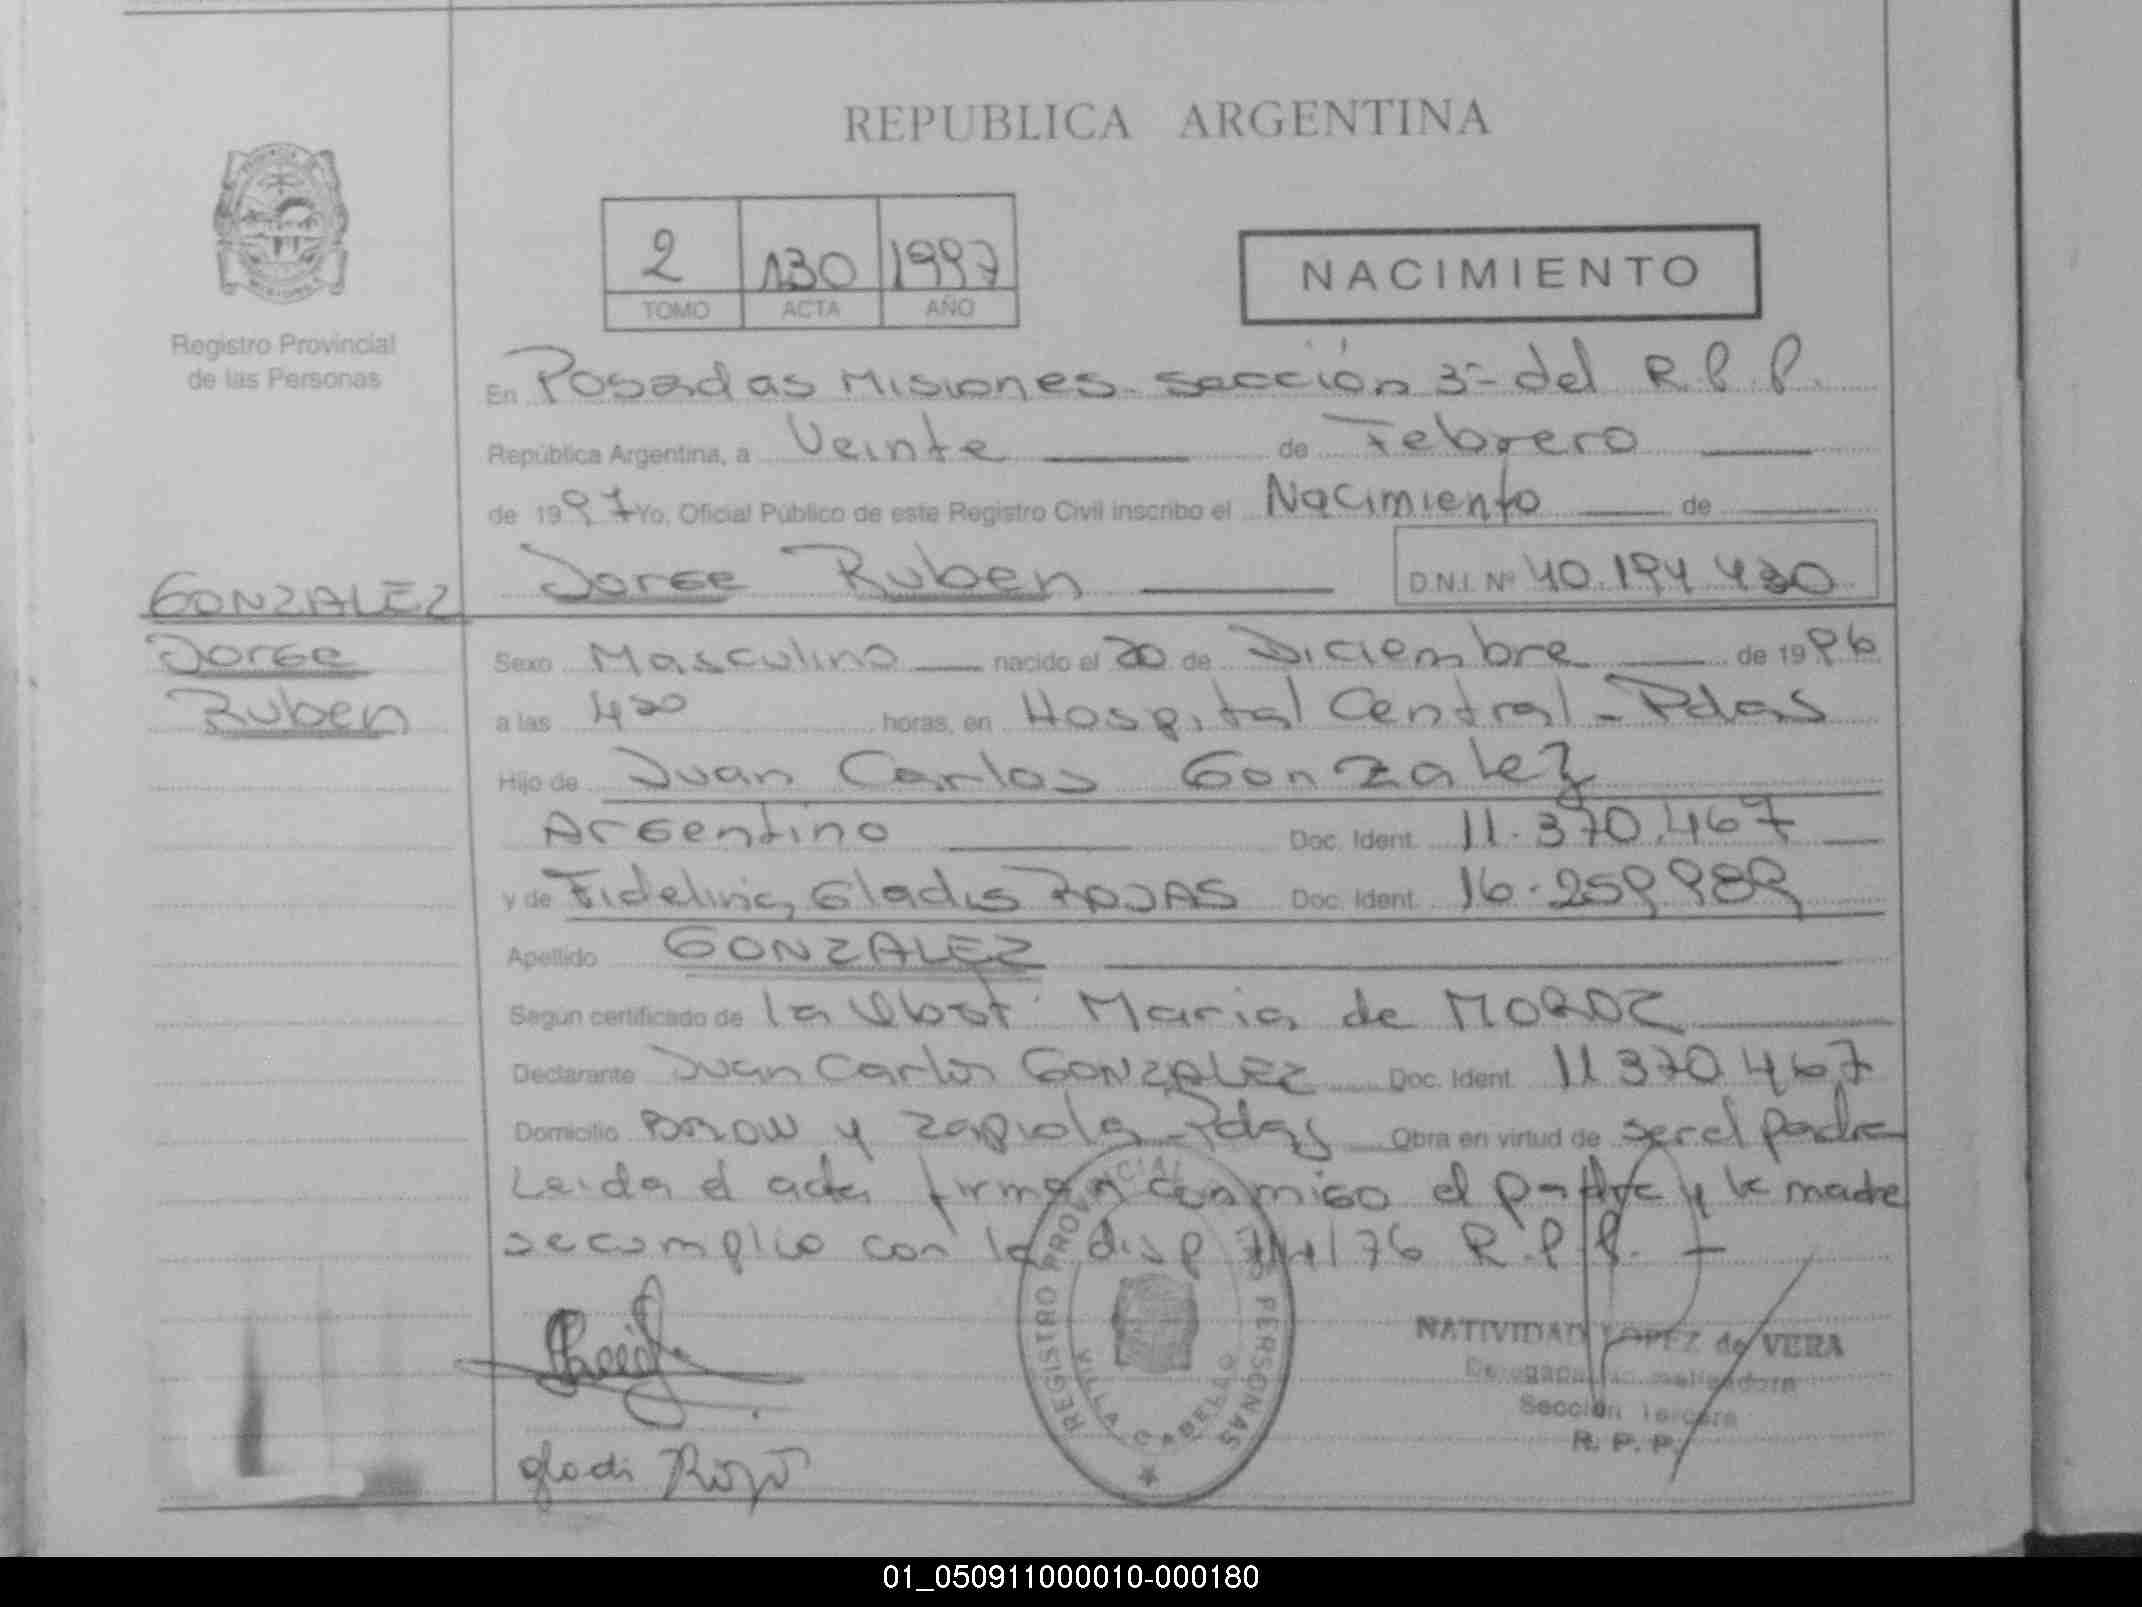 REPUBLICA ARGENTINA
2 130 1997
TOMO ACTA AÑO
NACIMIENTO
Registro Provincial
de las Personas
En Posadas Misiones sección 3- del R.P.P.
República Argentina, a Veinte de Febrero
de 1997 Yo, Oficial Público de este Registro Civil inscribo el Nacimiento de
Jorge Ruben D.N.I. Nº 40.194 430
GONZALEZ
Jorge
Ruben
Sexo Masculino nacido el 20 de Diciembre de 1996
a las 4 horas, en Hospital Central - Pdas
Hijo de Juan Carlos Gonzalez
Argentino Doc. Ident. 11.370.467
y de Fidelina Gladis ROJAS Doc. Ident. 16.259.989
Apellido GONZALEZ
Según certificado de la Obst. Maria de
Declarante Juan Carlos GONZALEZ Doc. Ident. 11370467
Domicilio Brow y Zapiola - Pdas Obra en virtud de ser el padre
Leida el acta firman conmigo el padre y la madre
se cumplio con la disp /76 R.P.P.
REGISTRO PROVINCIAL PERSONAS
VILLA CABELLO
NATIVIDAD LOPEZ de VERA
Sección Tercera
R. P. P.
01_050911000010-000180